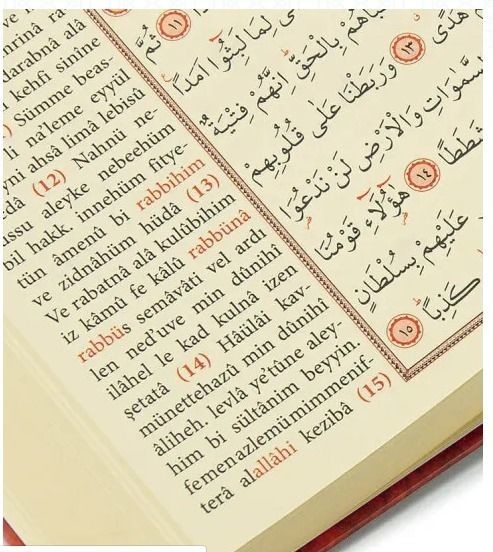 darabnâ alâ
kehfi sinîne
) Sümme beas-
na'leme eyyül
yni ahsa limâ lebisû
dâ (12) Nahnü ne-
ussu aleyke nebeehüm
bil hakk, innehüm fitye-
tün âmenû bi rabbihim
ve zidnâhüm hüdâ (13)
Ve rabatnâ alâ kulûbihim
iz kâmû fe kâlû rabbünâ
rabbüs semâvâti vel ardı
len ned'uve min dûnihî
ilâhel le kad kulnâ izen
şetatâ (14) Hâülâi kav-
münettehazû min dûnihî
âliheh, levlâ ye'tûne aley-
him bi sültânim beyyin.
femenazlemümimmenif-
terâ alallâhi kezibâ (15)
١١ ثُمَّ
لِمَا لَبِثُوا اَمَداً
بِالْحَقِّ اِنَّهُمْ فِتْيَةٌ
هُدًى ١٣ وَرَبَطْنَا عَلٰى قُلُوبِهِمْ
السَّمٰوَاتِ وَالْاَرْضِ لَنْ نَدْعُوَا
شَطَطاً ١٤ هٰٓؤُلَٓاءِ قَوْمُنَا
عَلَيْهِمْ بِسُلْطَانٍ
كَذِباً ١٥